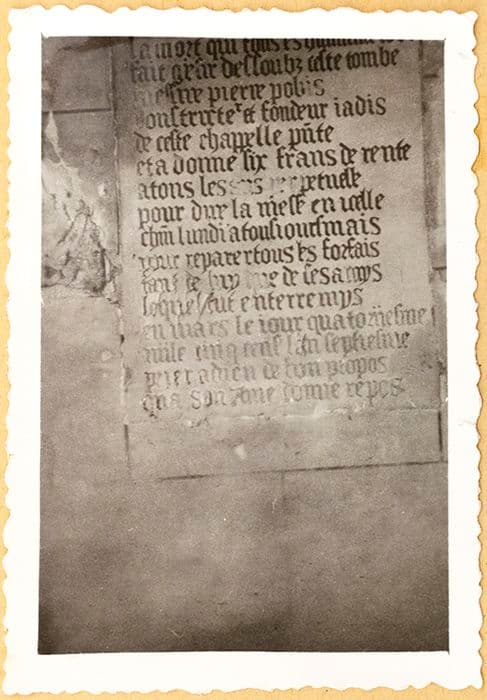 la mort qui tous
fait gesir dessoubz ceste tombe
messire pierre pobis
constructeᵗ et fondeur iadis
de ceste chappelle pn̄te
et a donne six frans de rente
a tous les perpetuelle
pour dire la messe en icelle
chm̄ lundi a tousiourſmais
pour reparer tous ses forfais
tant de luy que de ses amys
lequel fut enterre mys
en mars le iour quatorziesme
mille cinq cens lan septiesme
prier a dieu de bon propos
qua son ame donne repos